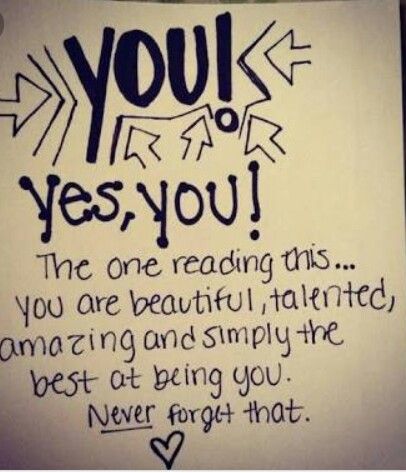 YOU!
yes, you!
The one reading this...
you are beautiful, talented,
amazing and simply the
best at being you.
Never forget that.